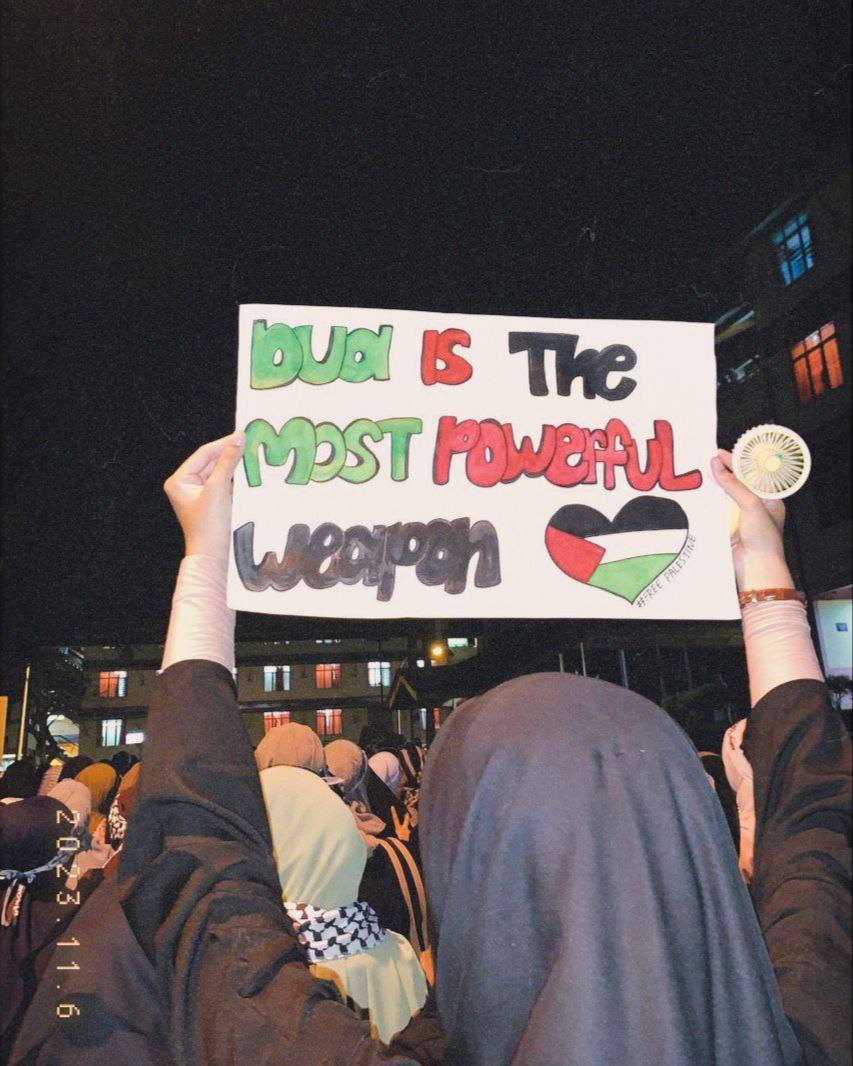 DUA IS The
MOST POWERfUL
weapon
#FREE PALESTINE
2023.11.6